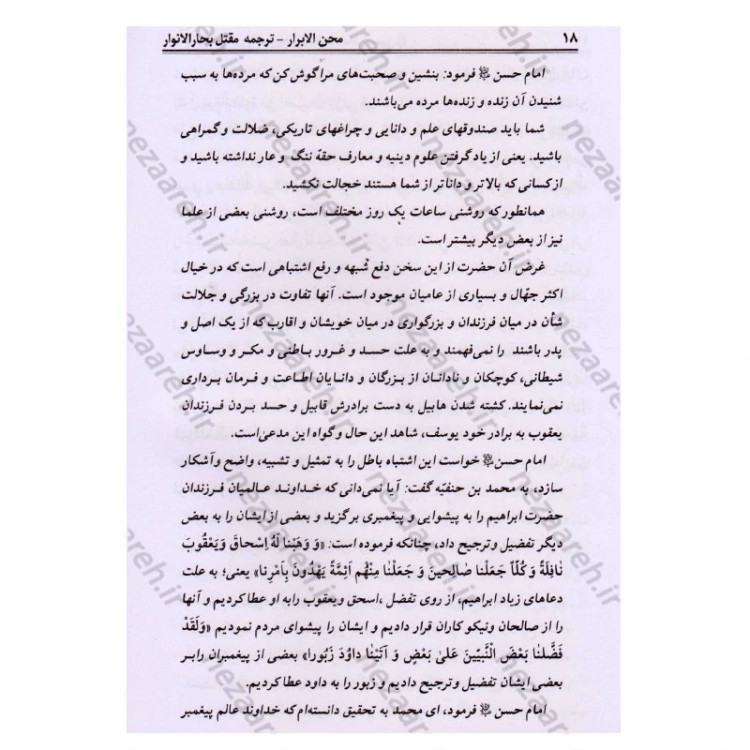 ۱۸ محن الابرار – ترجمه مقتل بحارالانوار
امام حسن ﷼ فرمود: بنشین و صحبت‌های مرا گوش کن که مرده‌ها به سبب
شنیدن آن زنده و زنده‌ها مرده می‌باشند.
شما باید صندوقهای علم و دانایی و چراغهای تاریکی، ضلالت و گمراهی
باشید. یعنی از یاد گرفتن علوم دینیه و معارف حقهٔ ننگ و عار نداشته باشید و
از کسانی که بالاتر و داناتر از شما هستند خجالت نکشید.
همانطور که روشنی ساعات یک روز مختلف است، روشنی بعضی از علما
نیز از بعض دیگر بیشتر است.
غرض آن حضرت از این سخن دفع شبهه و رفع اشتباهی است که در خیال
اکثر جهّال و بسیاری از عامیان موجود است. آنها تفاوت در بزرگی و جلالت
شأن در میان فرزندان و بزرگواری در میان خویشان و اقارب که از یک اصل و
پدر باشند را نمی‌فهمند و به علت حسد و غرور باطنی و مکر و وساوس
شیطانی، کوچکان و نادانان از بزرگان و دانایان اطاعت و فرمان برداری
نمی‌نمایند. کشته شدن هابیل به دست برادرش قابیل و حسد بردن فرزندان
یعقوب به برادر خود یوسف، شاهد این حال و گواه این مدعی‌است.
امام حسن خواست این اشتباه باطل را به تمثیل و تشبیه، واضح و آشکار
سازد، به محمد بن حنفیّه گفت: آیا نمی‌دانی که خداوند عالمیان فرزندان
حضرت ابراهیم را به پیشوایی و پیغمبری برگزید و بعضی از ایشان را به بعض
دیگر تفضیل و ترجیح داد، چنانکه فرموده است: «وَ وَهَبْنا لَهُ اِسْحاقَ وَیَعْقُوبَ
نافِلَةً وَ کُلّاً جَعَلْنا صالِحینَ وَ جَعَلْنا مِنْهُم اَئِمَّةً یَهْدُونَ بِاَمْرِنا» یعنی؛ به علت
دعاهای زیاد ابراهیم، از روی تفضل ،اسحق و یعقوب را به او عطا کردیم و آنها
را از صالحان و نیکو کاران قرار دادیم و ایشان را پیشوای مردم نمودیم «وَلَقَدْ
فَضَّلْنا بَعْضَ النَّبِیّینَ عَلیٰ بَعْضٍ وَ آتَیْنا داوُدَ زَبُورا» بعضی از پیغمبران را بر
بعضی ایشان تفضیل و ترجیح دادیم و زبور را به داود عطا کردیم.
امام حسن فرمود، ای محمد به تحقیق دانسته‌ام که خداوند عالم پیغمبر
nezaareh.ir